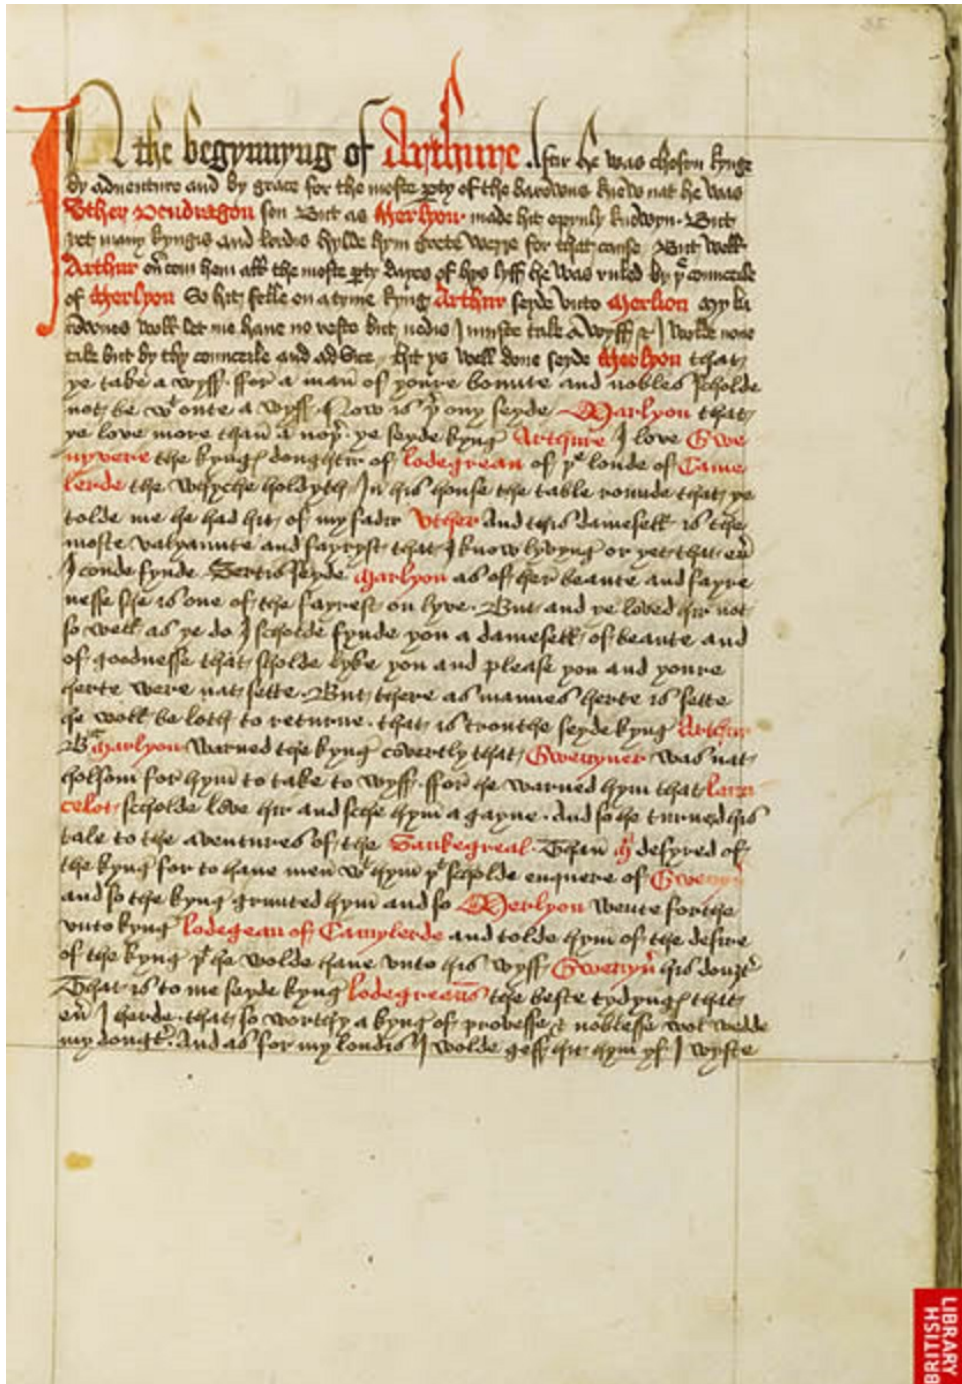 35
IN the begynnyng of Arthure Aftir he was chosyn kynge
by adventure and by grace for the moste ꝑty of the barowns knew nat he was
Vther Pendragon son But as Merlyon made hit opynly knowyn. But
yet many kyngis and lordis hylde hym grete werre for that cause But well
Arthur ou͛com hem all the moste ꝑty dayes of hys lyff he was ruled by yͤ counceile
of Merlyon So hit felle on a tyme kyng Arthur seyde vnto Merlion My ba
rownes woll let me have no reste but nedis I muste take a wyff & I wolde none
take but by thy counceile and advice hit ys well done seyde Merlyon that
ye take a wyff. ffor a man̄ of youre bounte and nobles scholde
not be wᵗoute a wyff. Now is þʳ ony seyde Marlyon that
ye love more than̄ a noþʳ. ye seyde kyng Arthure I love Gwe
nyvere the kyngꝭ doughtir of lodegrean of þᵉ londe of Came
lerde the whyche holdyth In his house the table rounde that ye
tolde me he had hit of my fadir Vther And this damesell is the
moste valyaunte and fayryst that I know lyvyng or yet that eū
I coude fynde Sertis seyde Marlyon as of her beaute and fayre
nesse she is one of the fayrest on lyve. But and ye loved hir not
so well as ye do I scholde fynde you a damesell of beaute and
of goodnesse that sholde lyke you and please you and youre
herte were nat sette. But there as mannes herte is sette
he woll be loth to returne. that is trouthe seyde kyng Arthur
Bᵗ Marlyon warned the kyng cou͛tly that Gwenyver was nat
holsom for hym̄ to take to wyff. ffor he warned hym that laun
celot scholde love hir and sche hym̄ a gayne. And so he turned his
tale to the aventures of the Sankegreal. Than̄ M͛ desyred of
the kyng for to have men wᵗ hym þᵗ scholde enquere of Gweny͛
and so the kyng graunted hym̄ and so Merlyon wente forthe
vnto kyng lodegean of Camylerde and tolde hym̄ of the desire
of the kyng þᵗ he wolde have vnto his wyff Gwenyv͛ his douȝtʳ
That is to me seyde kyng lodegreaūs the beste tydyngꝭ that
eū I herde that so worthy a kyng of provesse & noblesse wol wedde
my dougtʳ. And as for my londis I wolde geff hit hym yf I wyste
BRITISH
LIBRARY